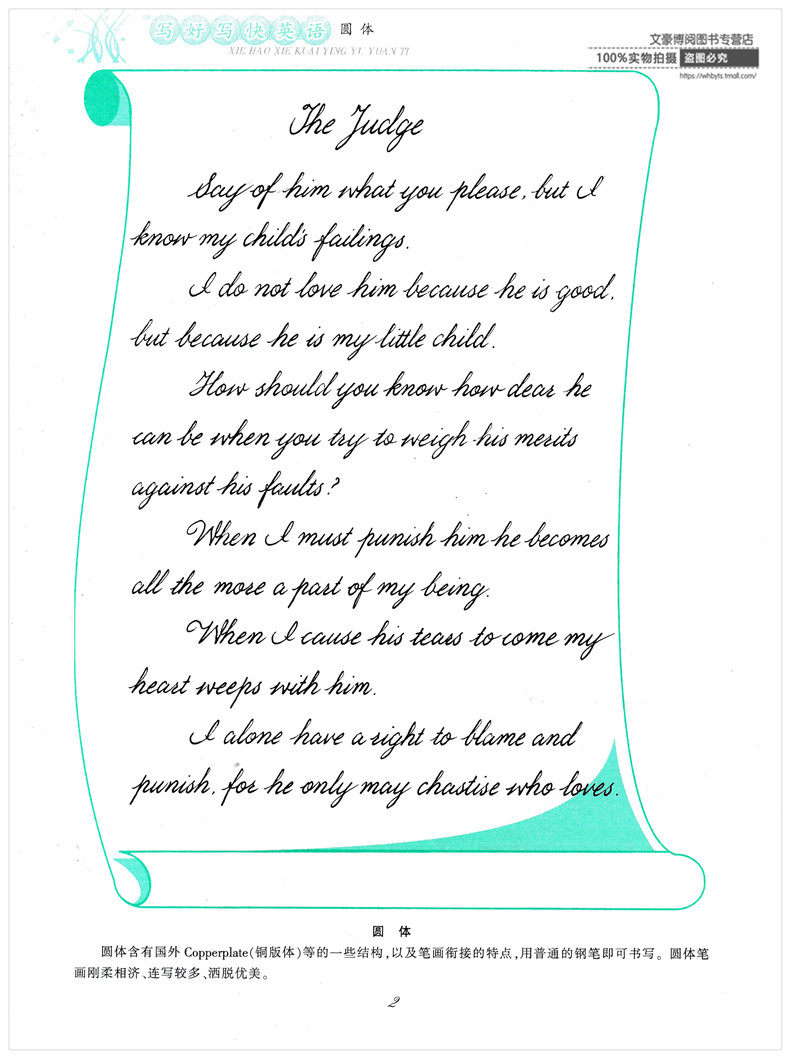 写好写快英语 圆体
XIE HAO XIE KUAI YING YU YUAN TI
文豪博阅图书专营店
100%实物拍摄 盗图必究
https://whbyts.tmall.com/
The Judge
Say of him what you please, but I
know my child's failings.
I do not love him because he is good,
but because he is my little child.
How should you know how dear he
can be when you try to weigh his merits
against his faults?
When I must punish him he becomes
all the more a part of my being.
When I cause his tears to come my
heart weeps with him.
I alone have a right to blame and
punish, for he only may chastise who loves.
圆 体
圆体含有国外 Copperplate(铜版体)等的一些结构,以及笔画衔接的特点,用普通的钢笔即可书写。圆体笔
画刚柔相济、连写较多、洒脱优美。
2